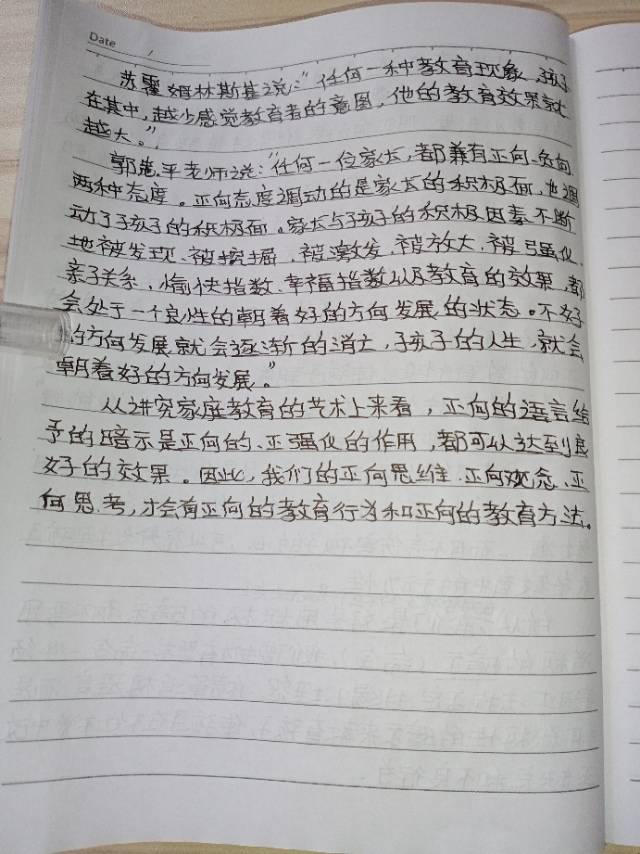 Date /
苏霍姆林斯基说:"任何一种教育现象,孩子
在其中,越少感觉教育者的意图,他的教育效果就
越大。"
郭老师说:"任何一位家长,都兼有正向、负向
两种态度。正向态度调动的是家长的积极面,也调
动了孩子的积极面。家长与孩子的积极因素不断
地被发现、被挖掘、被激发、被放大、被强化,
亲子关系,愉快指数、幸福指数以及教育的效果,都
会处于一个良性的朝着好的方向发展的状态。不好
的方向发展就会逐渐的消亡,孩子的人生,就会
朝着好的方向发展。"
从讲究家庭教育的艺术上来看,正向的语言给
予的暗示是正向的、正强化的作用,都可以达到良
好的效果。因此,我们的正向思维、正向观念、正
向思考,才会有正向的教育行为和正向的教育方法。